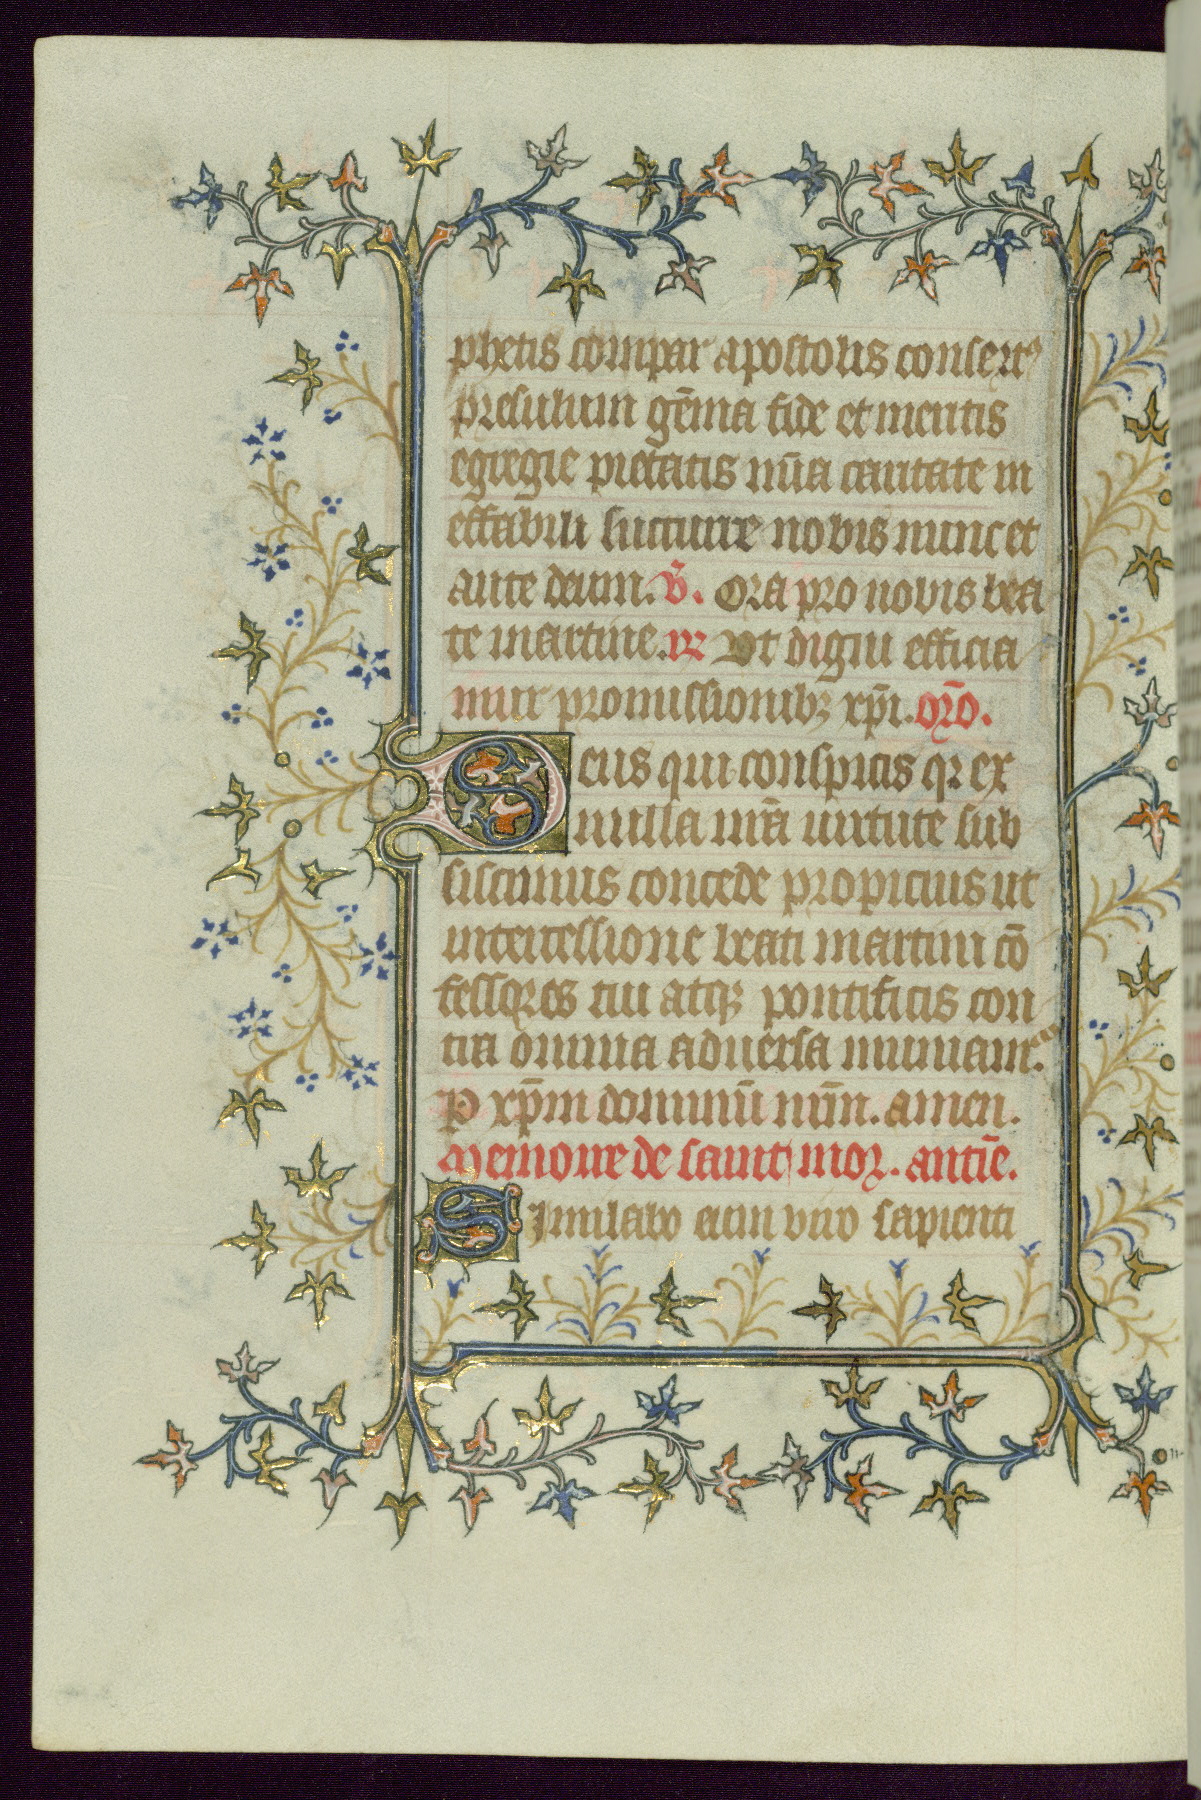 phetis compar apostolis consertꝰ
presulum gēma fide et meritis
egregie pietatis nūa caritate in
effabili succurre nobis nunc et
ante deum. v̄. Ora pro nobis bea
te martine. rꝛ Ut digni efficia
mur promissionibꝫ xp̄i. or̄o.
Deus qui conspicis qꝛ ex
nulla nr̄a uirtute sub
sistimus concede propicius ut
intercessione beati martini cō
fessores tui atqꝫ pontificis con
tra omnia aduersa muniamur.
P xp̄m dominū nr̄m. amen.
Memoire de saint mor. antiē.
Similabo eum viro sapienti